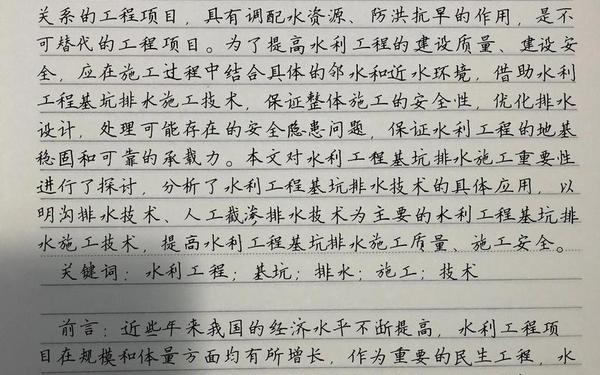 关系的工程项目，具有调配水资源、防洪抗旱的作用，是不
可替代的工程项目。为了提高水利工程的建设质量、建设安
全，应在施工过程中结合具体的邻水和近水环境，借助水利
工程基坑排水施工技术，保证整体施工的安全性，优化排水
设计，处理可能存在的安全隐患问题，保证水利工程的地基
稳固和可靠的承载力。本文对水利工程基坑排水施工重要性
进行了探讨，分析了水利工程基坑排水技术的具体应用，以
明沟排水技术、人工截渗排水技术为主要的水利工程基坑排
水施工技术，提高水利工程基坑排水施工质量、施工安全。
关键词：水利工程；基坑；排水；施工；技术
前言：近些年来我国的经济水平不断提高，水利工程项
目在规模和体量方面均有所增长，作为重要的民生工程，水